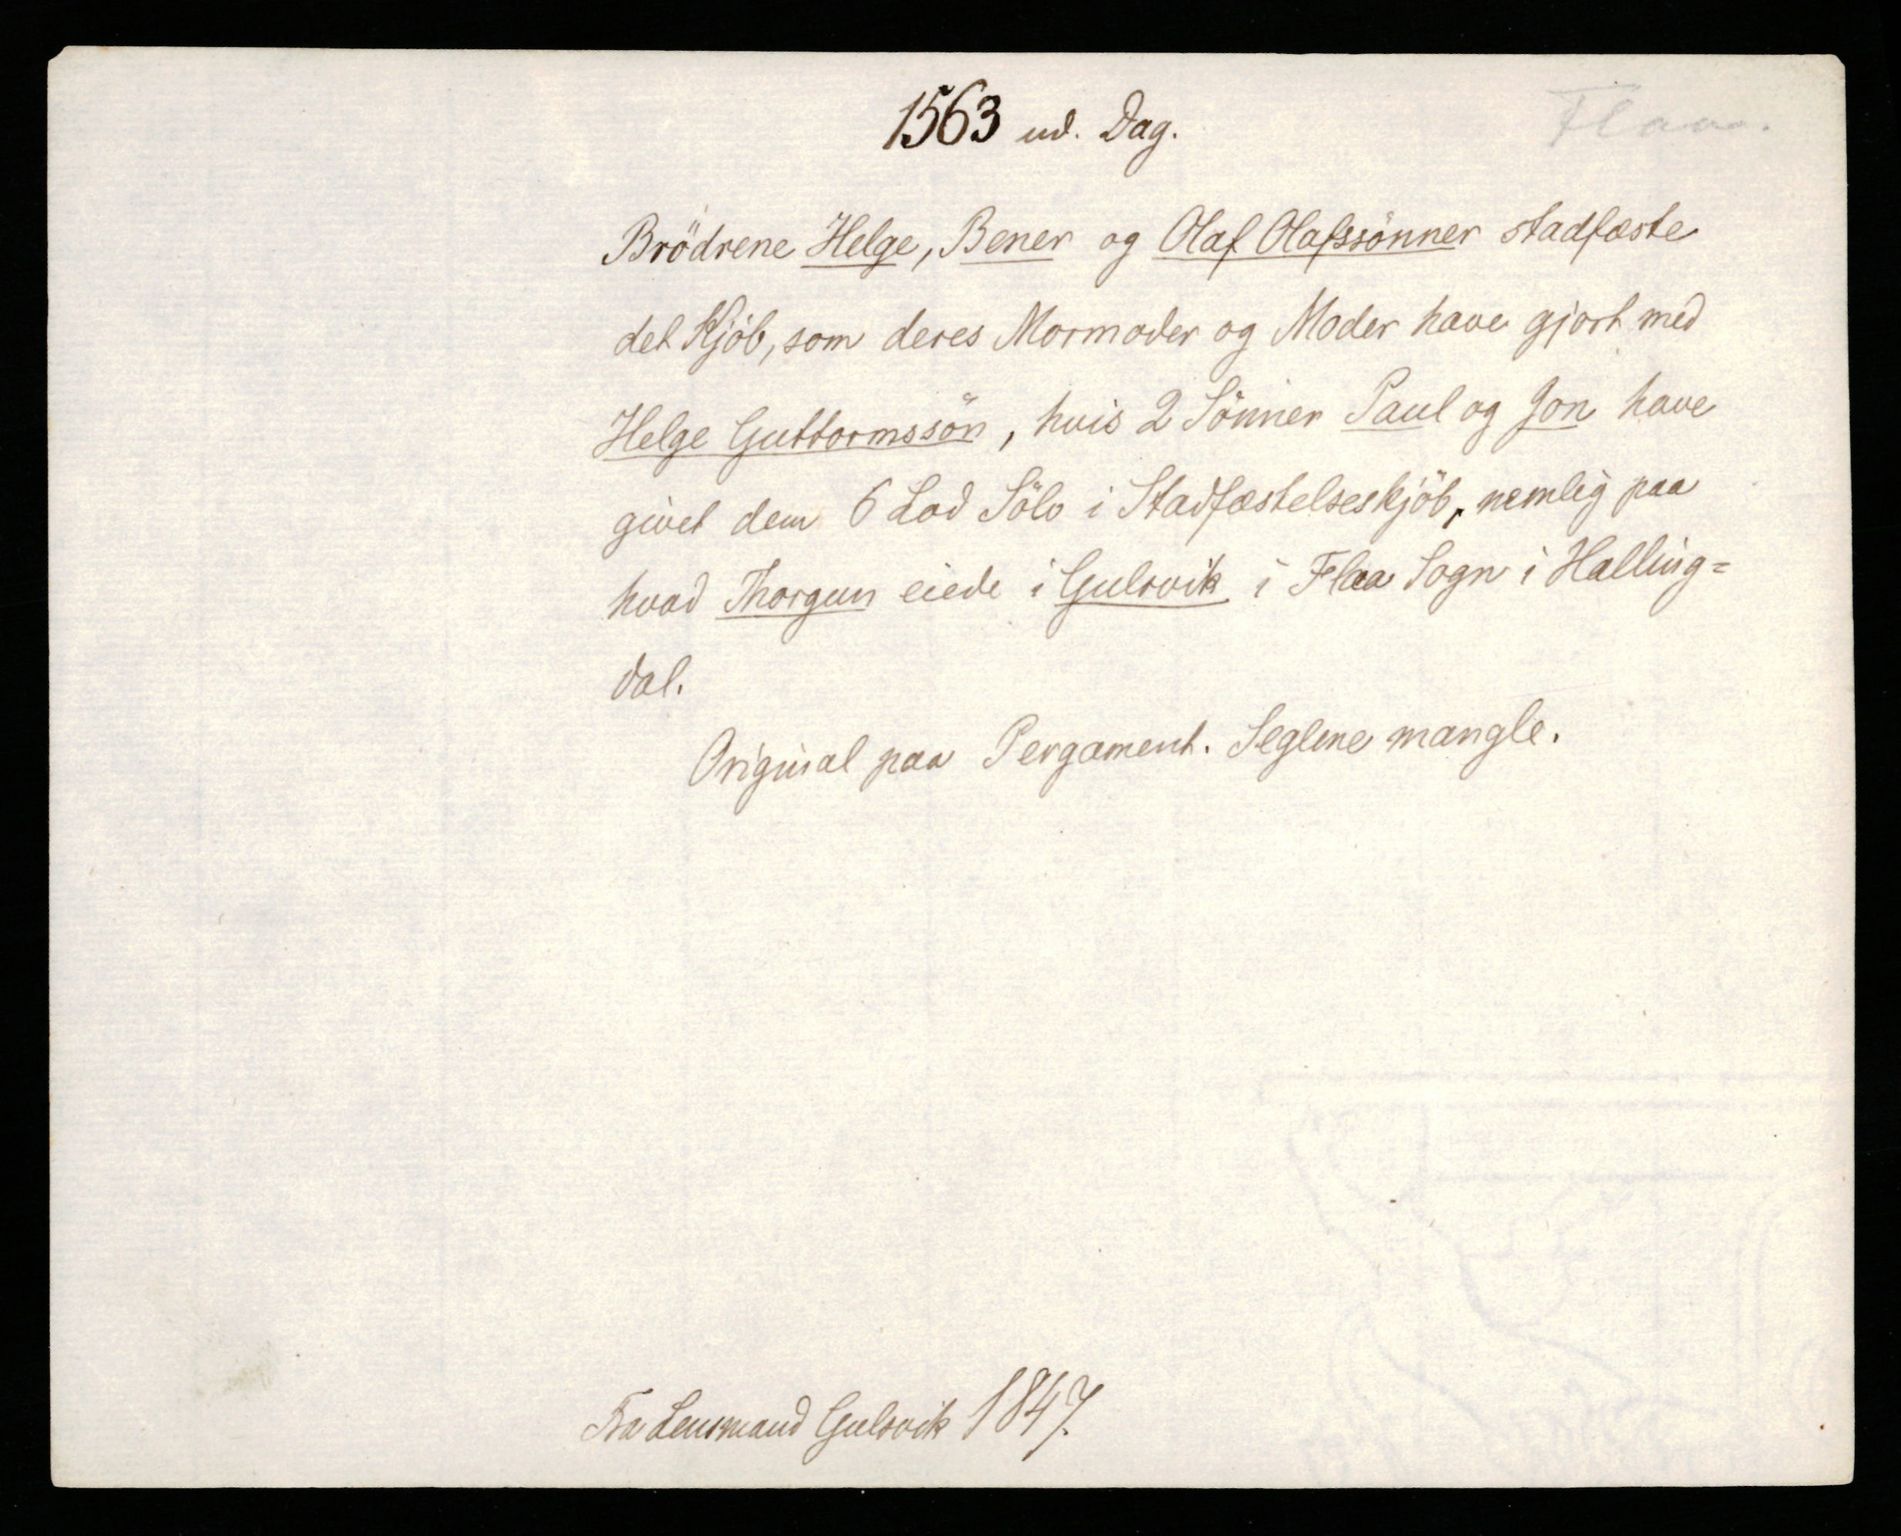 1563 ud. Dag.
Flaa.
Brödrene Helge, Bener og Olaf Olafssönner stadfæste
det Kjöb, som deres Mormoder og Moder have gjort med
Helge Guttormssön, hvis 2 Sönner Paul og Jon have
givet dem 6 Lod Sölv i Stadfæstelseskjöb, nemlig paa
hvad Thorgun eiede i Gulsvik i Flaa Sogn i Halling=
dal.
Original paa Pergament. Seglene mangle.
Fra Lensmand Gulsvik 1847.